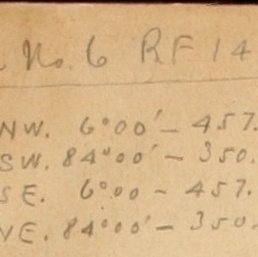 No. 6 RF 14
NW. 6°00'– 457.
SW. 84°00'– 350.
SE. 6°00 – 457.
NE. 84°00'– 350.